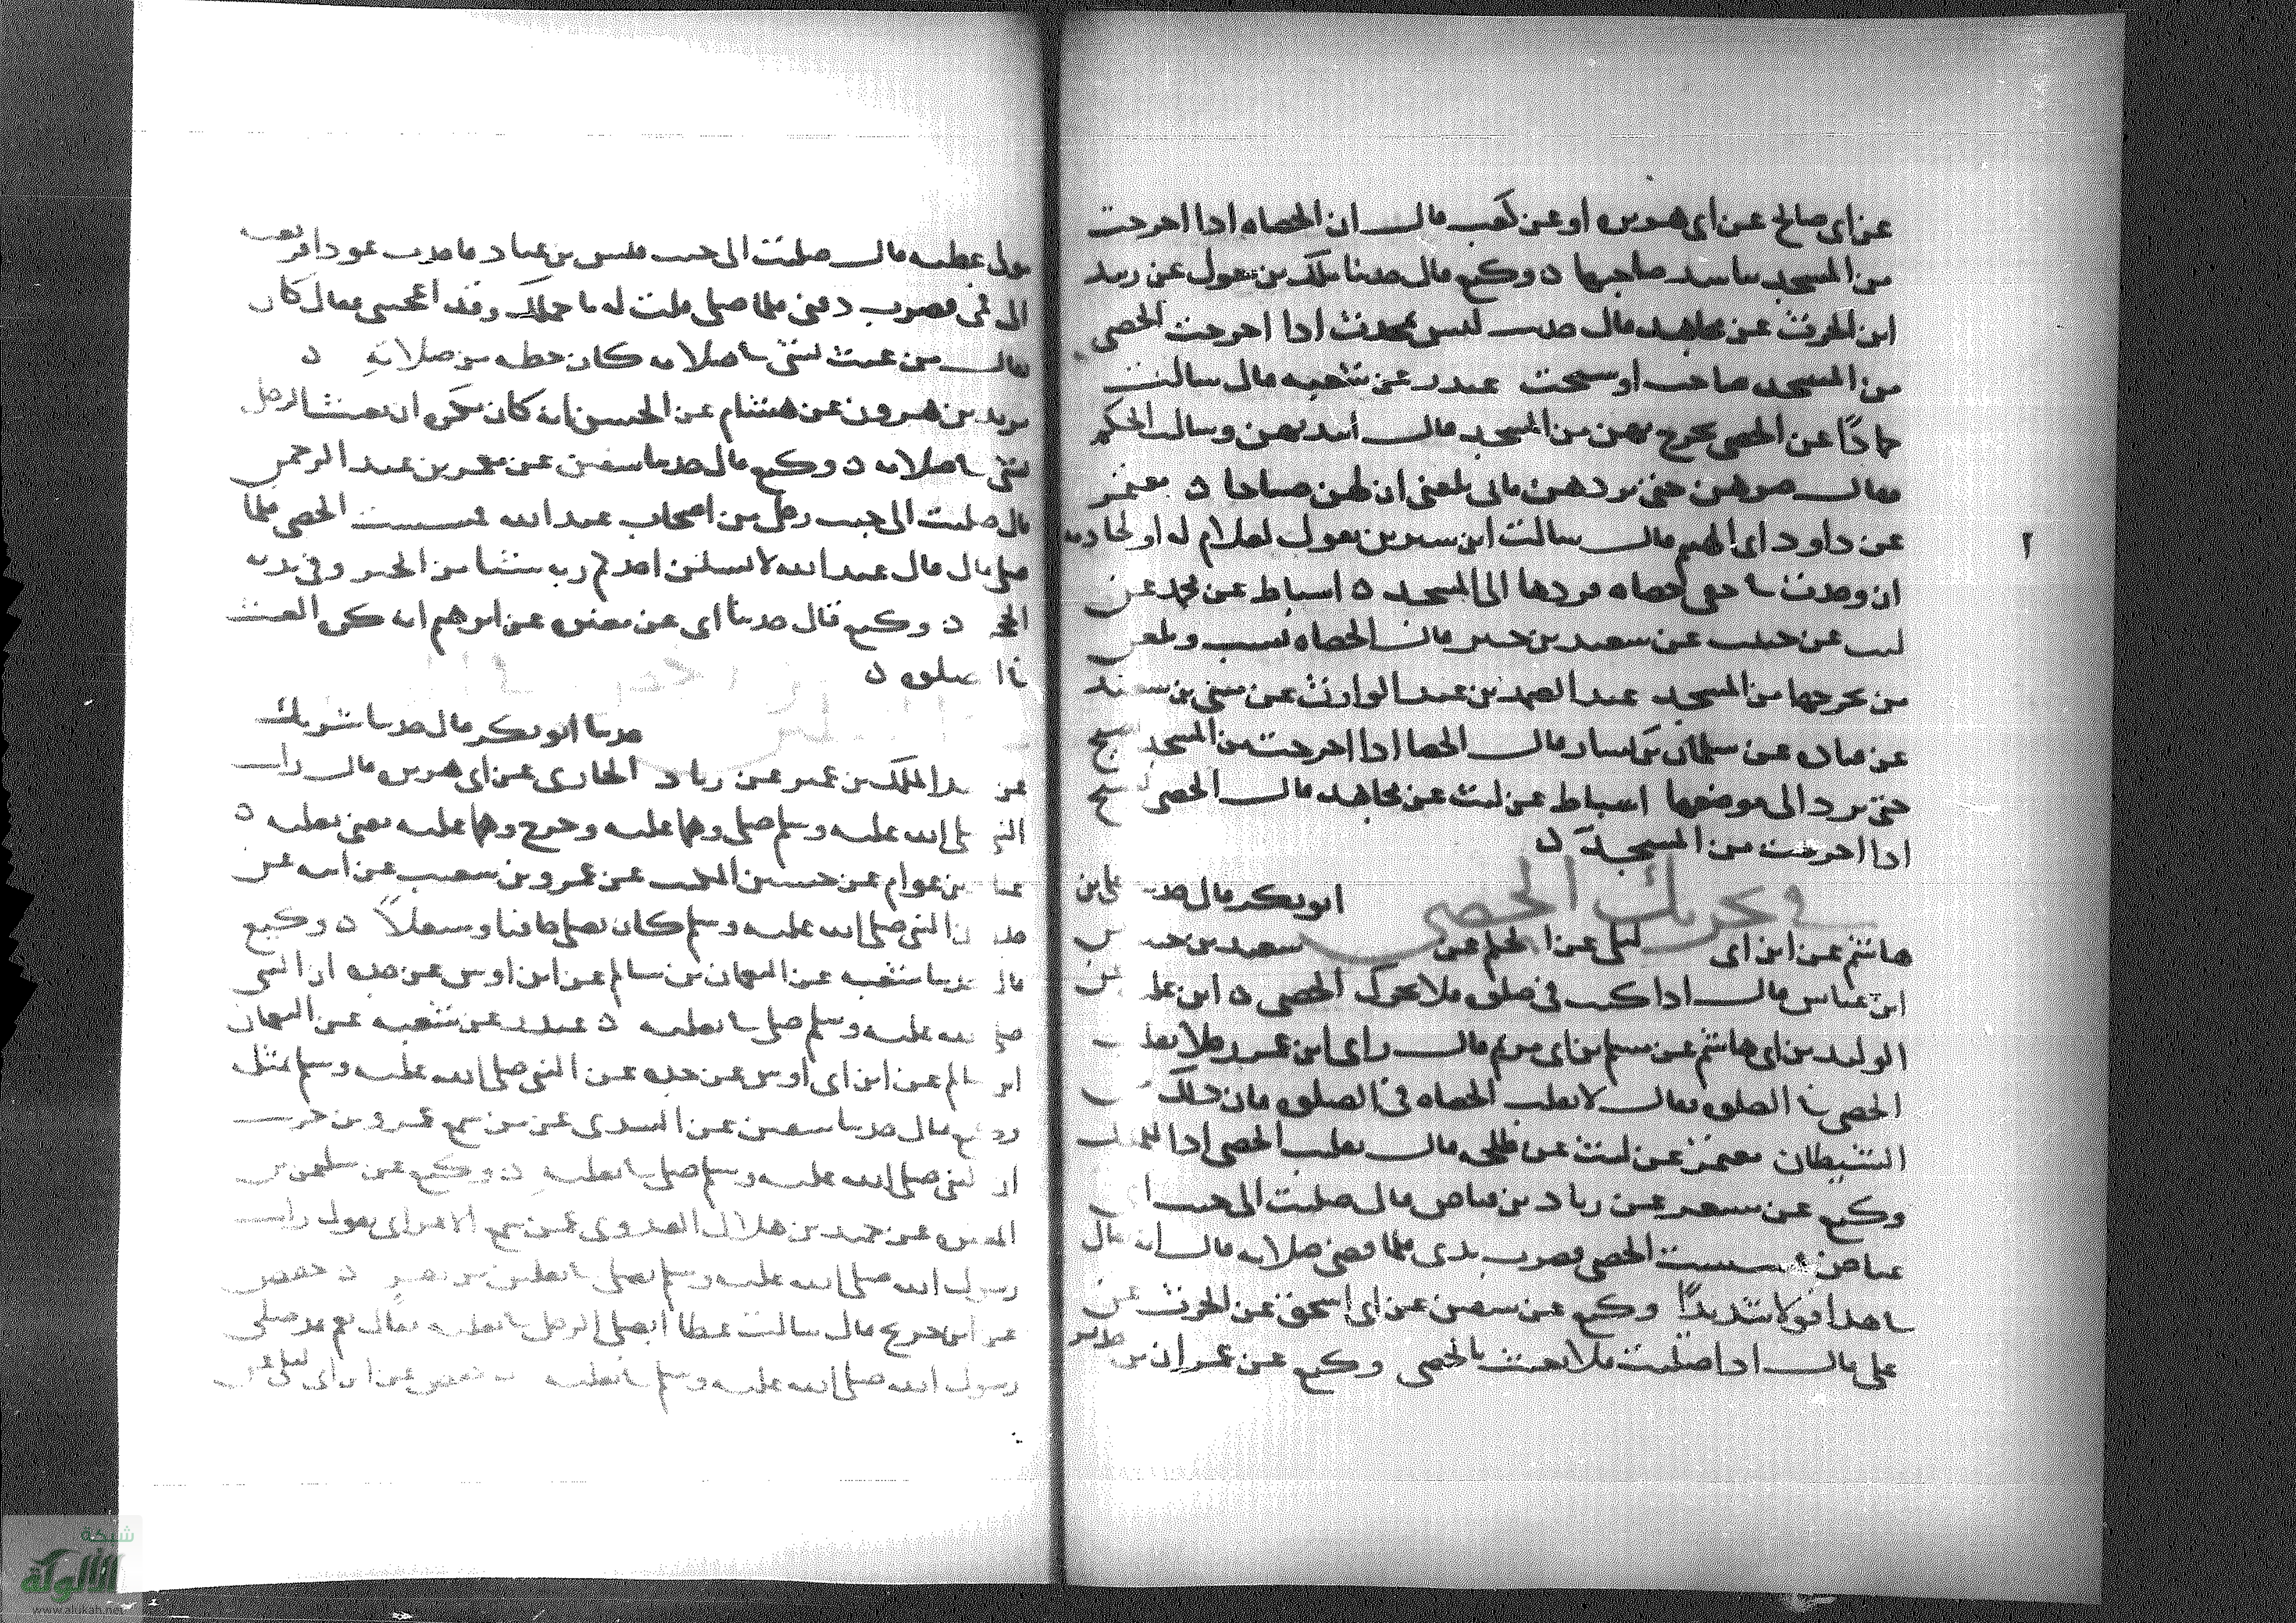 عن ابى صالح عن ابى هريره او عن كعب قال ان الحصاه اذا اخرجت
من المسجد تناشد صاحبها ه وكيع قال حدثنا ملك بن مغول عن زبيد
ابن الحرث عن مجاهد قال اذا اخرجت الحصى
من المسجد صاحت او سبحت غندر عن شعبه قال سالت
حمادًا عن الحصى يخرج بهن من المسجد قال وسالت الحكم
فقال صرهن حتى تردهن فانى بلغنى ان لهن صياحا ه معتمر
عن داود ابى الهيثم قال سالت ابن سيرين يقول لغلام له او لخادمه
ان وجدت فى خفى حصاه فردها الى المسجد ه اسباط عن محمد عن
ليث عن حبيب عن سعيد بن جبير قال الحصاه تسب وتلعن
من يخرجها من المسجد عبد الصمد بن عبد الوارث عن مثنى بن سعيد
عن قتاده عن سليمان بن يسار قال الحصا اذا اخرجت من المسجد تصيح
حتى ترد الى موضعها اسباط عن ليث عن مجاهد قال الحصى تسبح
اذا اخرجت من المسجد ه
وتحريك الحصى
ابو بكر قال حدثنا على بن
هاشم عن ابن ابى ليلى عن الحكم عن سعيد بن جبير عن
ابن عباس قال اذا كنت فى صلوه فلا تحرك الحصى ه ابن عليه عن
الوليد بن ابى هاشم عن مسلم بن ابى مريم قال راى ابن عمر رجلا يقلب
الحصى فى الصلوه فقال لا تقلب الحصاه فى الصلوه فان ذلك من
الشيطان معتمر عن ليث عن طلحه قال تقلب الحصى اذا
وكيع عن مسعر عن زياد بن فياض قال صليت الى جنب ابى
عياض فمسست الحصى فضرب يدى فلما قضى صلاته قال انه قال
فى هذا قولا شديدًا وكيع عن سفين عن ابى اسحق عن الحرث عن
على قال اذا صليت فلا تعبث بالحصى وكيع عن عمران بن حدير
عن عطيه قال صليت الى جنب قيس بن عباد فاخذت عودا فرفعته
الى فمى فضرب ذقنى فلما صلى قلت له ما حملك وقد اعجبنى فقال كان
يقال من عبث بشى فى صلاته كان حظه من صلاته ه
يزيد بن هرون عن هشام عن الحسن انه كان يكره ان يعبث الرجل
بشى فى صلاته ه وكيع قال حدثنا سفين عن معمر بن عبد الرحمن
قال صليت الى جنب رجل من اصحاب عبد الله فمسست الحصى فلما
صلى قال قال عبد الله لا يسئلن احدكم ربه شيئا من الخير وفى يده
الحجر ه وكيع قال حدثنا ابى عن مغيره عن ابرهيم انه كره العبث
فى الصلوه ه
حدثنا ابو بكر قال حدثنا شريك
عن عبد الملك بن عمير عن زياد الحارثى عن ابى هريره قال رايت
النبى صلى الله عليه وسلم صلى وهما عليه وخرج وهما عليه يعنى نعليه ه
عباد بن عوام عن حسين المعلم عن عمرو بن شعيب عن ابيه عن
جده ان النبى صلى الله عليه وسلم كان يصلى حافيا ومنتعلاً ه وكيع
قال حدثنا شعبه عن النعمان بن سالم عن ابن اوس عن جده ان النبى
صلى الله عليه وسلم صلى فى نعليه ه غندر عن شعبه عن النعمان
ابن سالم عن ابن ابى اوس عن جده عن النبى صلى الله عليه وسلم بمثله
وكيع قال حدثنا سفين عن السدى عن من سمع عمرو بن حريث
ان النبى صلى الله عليه وسلم صلى فى نعليه ه وكيع عن سليمن بن
المغيره عن حميد بن هلال العدوى عمن سمع الاعرابى يقول رايت
رسول الله صلى الله عليه وسلم يصلى فى نعلين من بقر ه حفص
عن ابن جريج قال سالت عطا ايصلى الرجل فى نعليه فقال نعم قد صلى
رسول الله صلى الله عليه وسلم فى نعليه حفص عن ابن ابى ليلى عن
شبكة
الألوكة
www.alukah.net